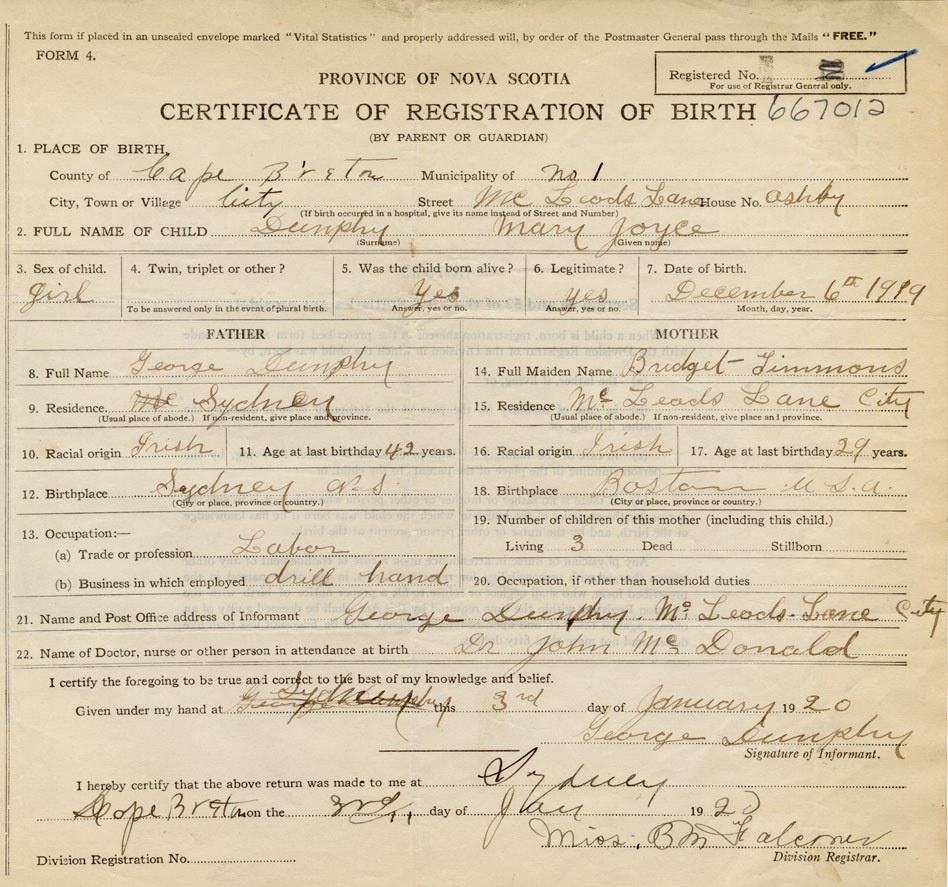 This form if placed in an unsealed envelope marked "Vital Statistics" and properly addressed will, by order of the Postmaster General pass through the Mails "FREE."
FORM 4.
Registered No.
For use of Registrar General only.
PROVINCE OF NOVA SCOTIA
CERTIFICATE OF REGISTRATION OF BIRTH 667012
(BY PARENT OR GUARDIAN)
1. PLACE OF BIRTH,
County of Cape Breton Municipality of No 1
City, Town or Village City Street Mc Leods Lane House No. Ashby
(If birth occurred in a hospital, give its name instead of Street and Number)
2. FULL NAME OF CHILD Dunphy Mary Joyce
(Surname) (Given name)
3. Sex of child. 4. Twin, triplet or other? 5. Was the child born alive? 6. Legitimate? 7. Date of birth.
girl Yes yes December 6th 1919
To be answered only in the event of plural birth. Answer, yes or no. Answer, yes or no. Month, day, year.
FATHER MOTHER
8. Full Name George Dunphy 14. Full Maiden Name Bridget Timmons
9. Residence. Sydney 15. Residence Mc Leods Lane City
(Usual place of abode.) If non-resident, give place and province. (Usual place of abode.) If non-resident, give place and province.
10. Racial origin Irish 11. Age at last birthday 42 years. 16. Racial origin Irish 17. Age at last birthday 29 years.
12. Birthplace Sydney N.S. 18. Birthplace Boston U.S.A.
(City or place, province or country.) (City or place, province or country.)
13. Occupation:— 19. Number of children of this mother (including this child.)
(a) Trade or profession Labor Living 3 Dead Stillborn
(b) Business in which employed drill hand 20. Occupation, if other than household duties
21. Name and Post Office address of Informant George Dunphy. Mc Leods-Lane City
22. Name of Doctor, nurse or other person in attendance at birth Dr John Mc Donald
I certify the foregoing to be true and correct to the best of my knowledge and belief.
Given under my hand at Sydney this 3rd day of January 1920
George Dunphy
Signature of Informant.
I hereby certify that the above return was made to me at Sydney
Cape Breton on the 3rd day of Jan 1920
Miss. B M Falconer
Division Registration No. Division Registrar.